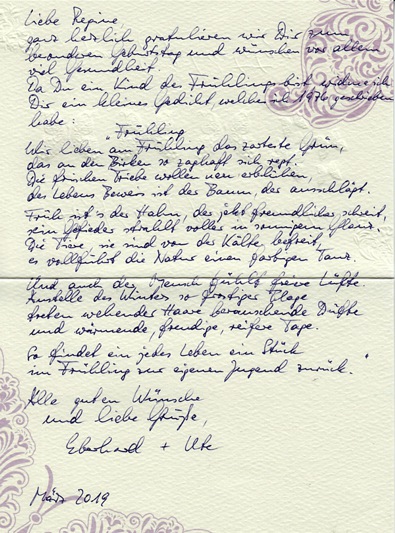 Liebe Regine,
ganz herzlich gratulieren wir Dir zum
besonderen Geburtstag und wünschen vor allem
viel Gesundheit.
Da Du ein Kind des Frühlings bist widme ich
Dir ein kleines Gedicht, welches ich 1976 geschrieben
habe:
"Frühling
Wir lieben am Frühling das zarteste Grün,
das an den Birken so zaghaft sich regt.
Die frischen Triebe wollen neu erblühen,
des Lebens Beweis ist der Baum, der ausschlägt.
Früh ist's der Hahn, der jetzt freundlicher schreit,
sein Gefieder strahlt voller in sonnigem Glanz.
Die Tiere, sie sind von der Kälte befreit,
es vollführt die Natur einen farbigen Tanz.
Und auch der Mensch fühlt freie Lüfte.
Anstelle des Winters so frostiger Plage
treten wehender Haare berauschende Düfte
und wärmende, freudige, reifere Tage.
So findet ein jedes Leben ein Stück
im Frühling zur eigenen Jugend zurück."
Alle guten Wünsche
und liebe Grüße,
Eberhard + Ute
März 2019